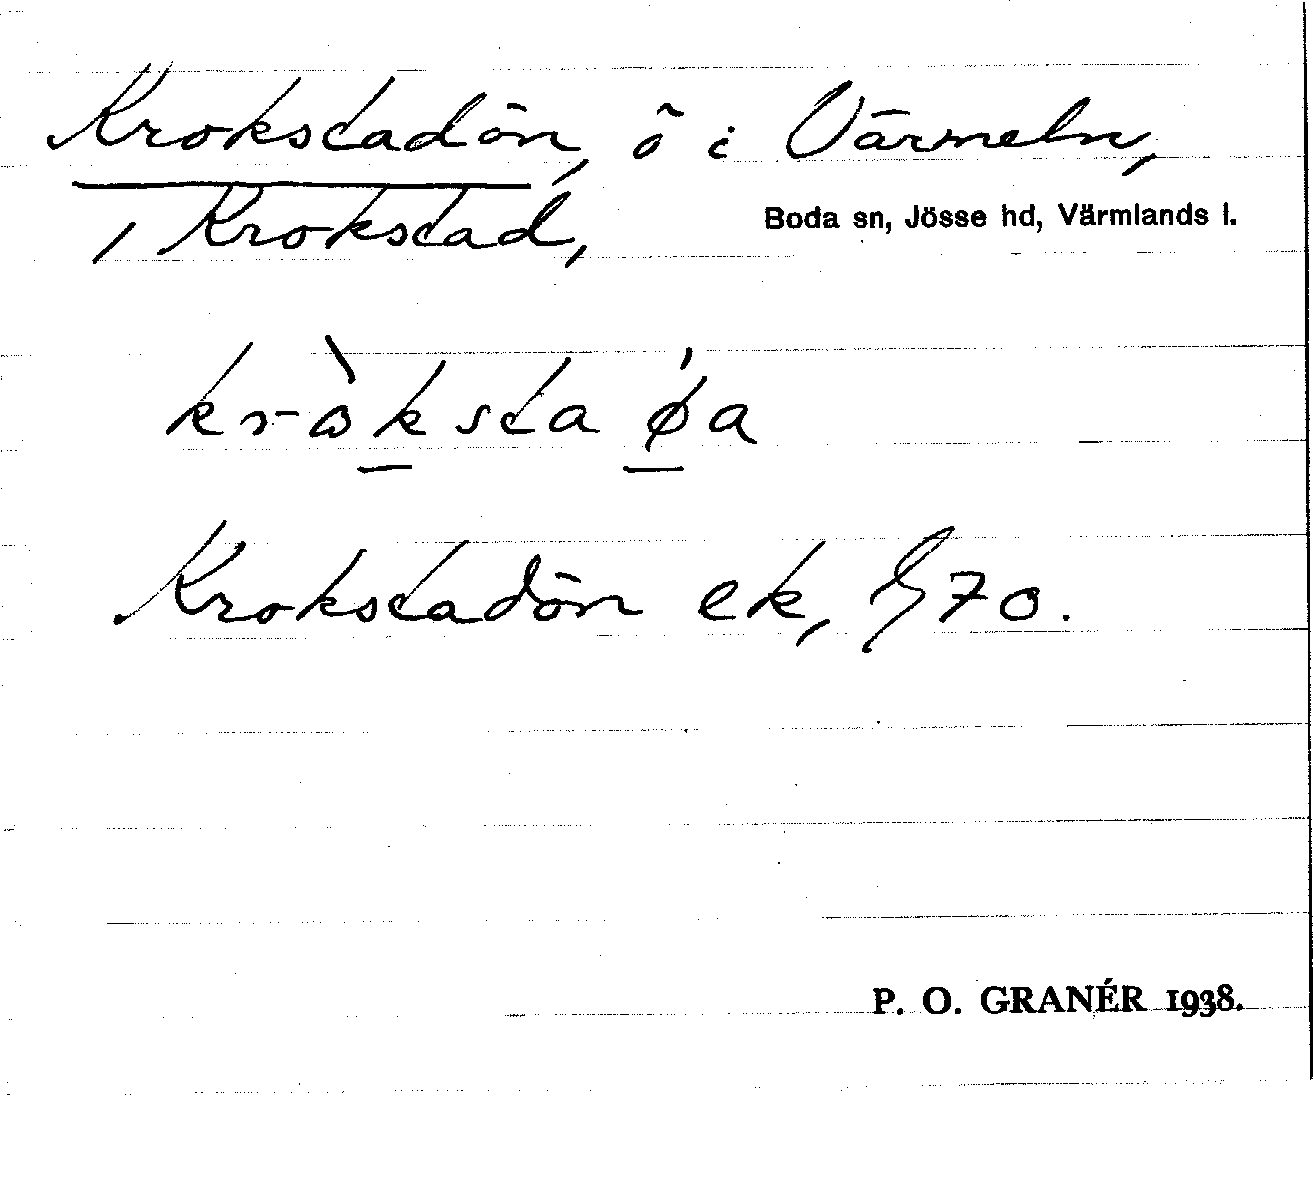 Krokstadön, ö i Värmeln,
, Krokstad, Boda sn, Jösse hd, Värmlands l.
kròksta ǿa
Krokstadön ek, 70.
P. O. GRANÉR 1938.